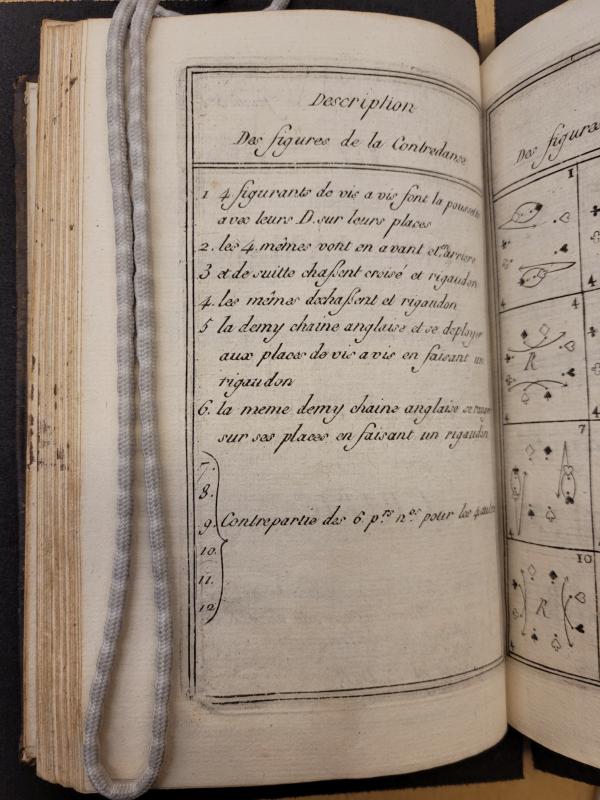 Description
Des figures de la Contredanse
1 4 figurants de vis a vis font la poussette
avec leurs D. sur leurs places
2. les 4 mêmes vont en avant et en arriere
3 et de suitte chassent croisé et rigaudon
4. les mêmes dechassent et rigaudon
5 la demy chaine anglaise et se deployer
aux places de vis a vis en faisant un
rigaudon
6. la meme demy chaine anglaise se
sur ses places en faisant un rigaudon
7.
8.
9. Contrepartie des 6. p.rs n.os pour les 4 autres
10.
11.
12
Des figures
1
4
4
R
4
4
7
4
10
R
4